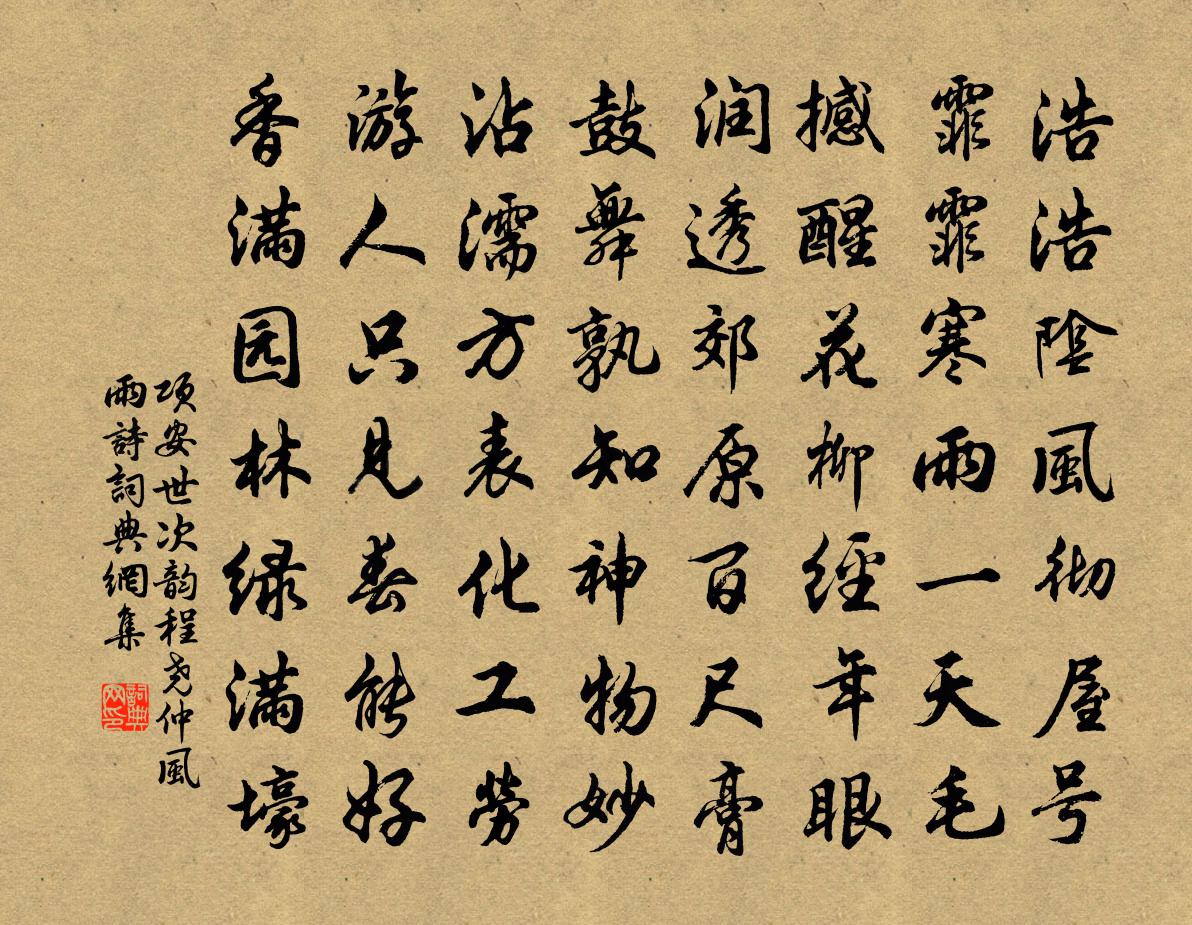 浩浩陰風彻屋号
霏霏寒雨一天毛
撼醒花柳經年眼
润透郊原百尺膏
鼓舞孰知神物妙
沾濡方表化工劳
游人只见春能好
香满园林绿满壕
项安世次韵程尧仲風
雨詩詞典網集
詞典网印